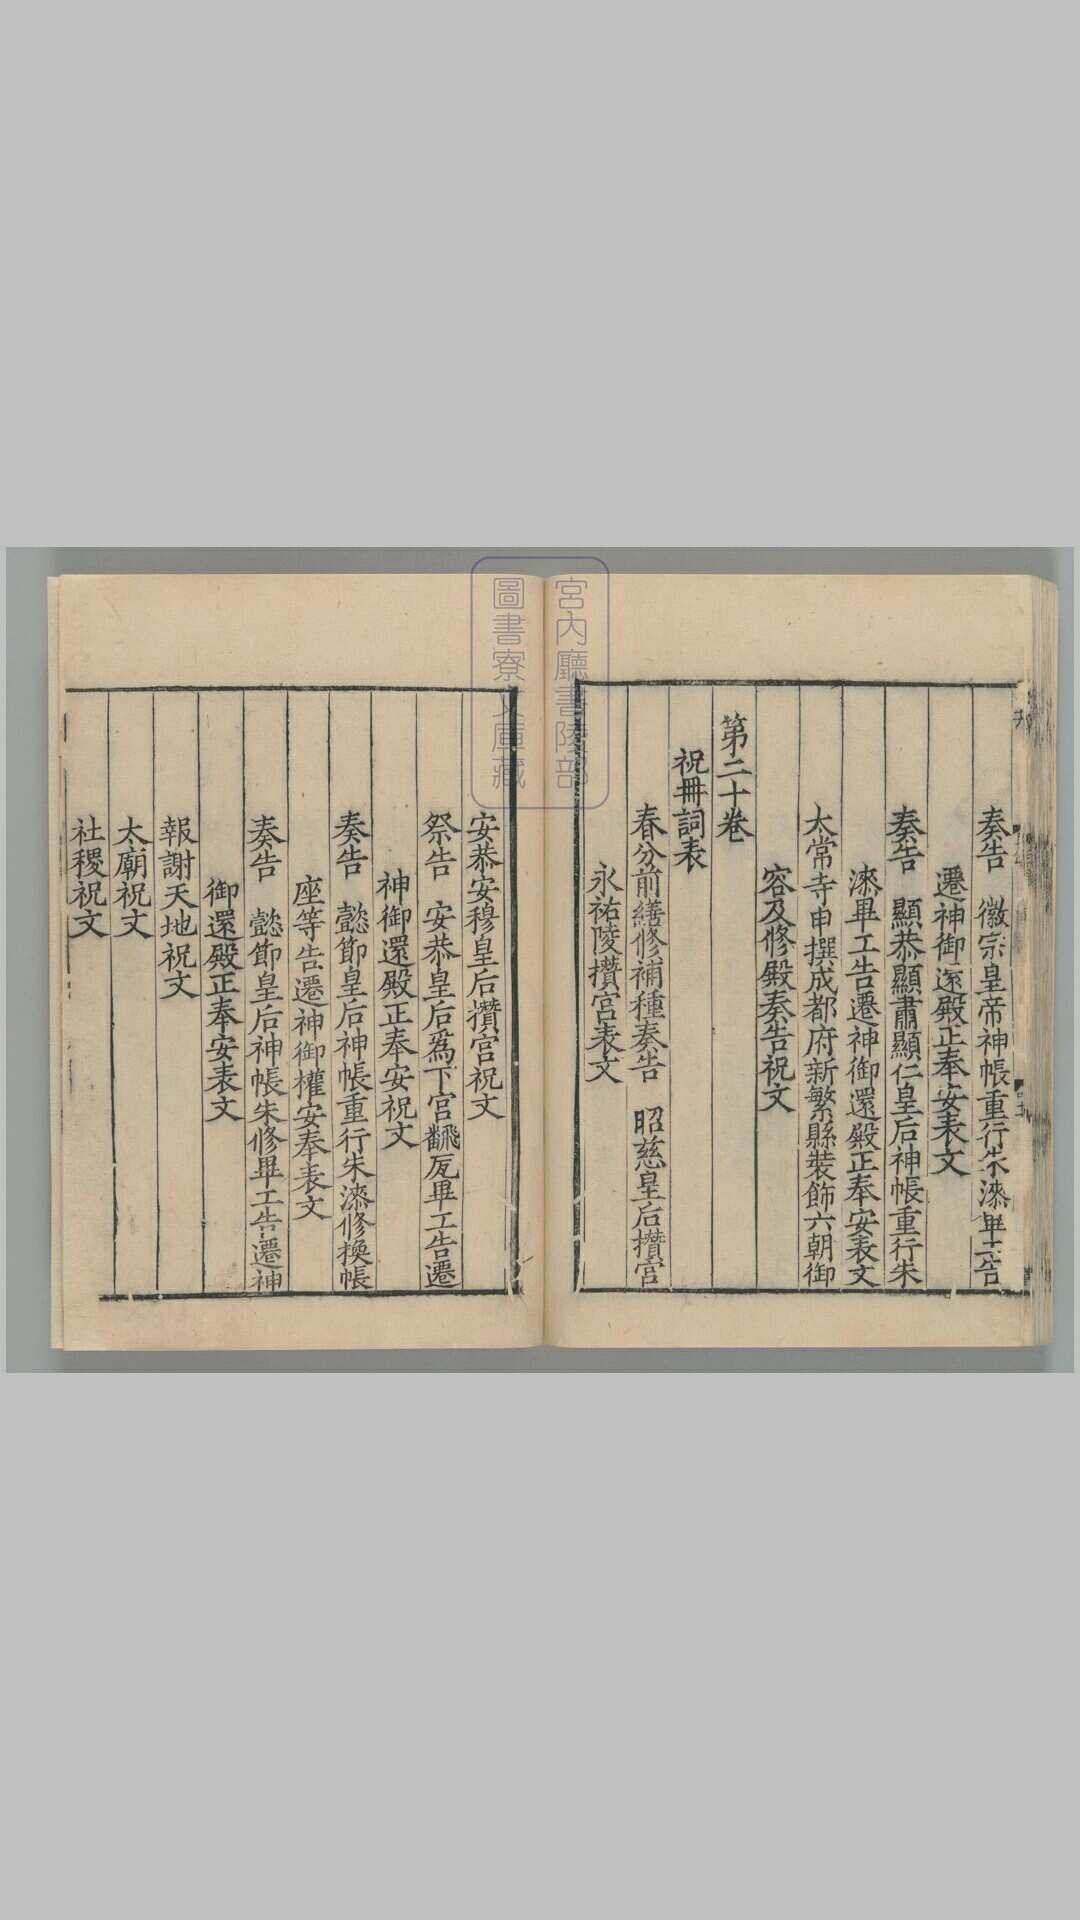 奏告　徽宗皇帝神帳重行朱漆畢工告
遷神御還殿正奉安表文
奏告　顯恭顯肅顯仁皇后神帳重行朱
漆畢工告遷神御還殿正奉安表文
太常寺申撰成都府新繁縣裝飾六朝御
容及修殿奏告祝文
第二十卷
祝冊詞表
春分前繕修補種奏告　昭慈皇后攢宮
永祐陵攢宮表文
安恭安穆皇后攢宮祝文
祭告　安恭皇后爲下宮飜瓦畢工告遷
神御還殿正奉安祝文
奏告　懿節皇后神帳重行朱漆修換帳
座等告遷神御權安奉表文
奏告　懿節皇后神帳朱修畢工告遷神
御還殿正奉安表文
報謝天地祝文
太廟祝文
社稷祝文
宮內廳書陵部
圖書寮文庫藏